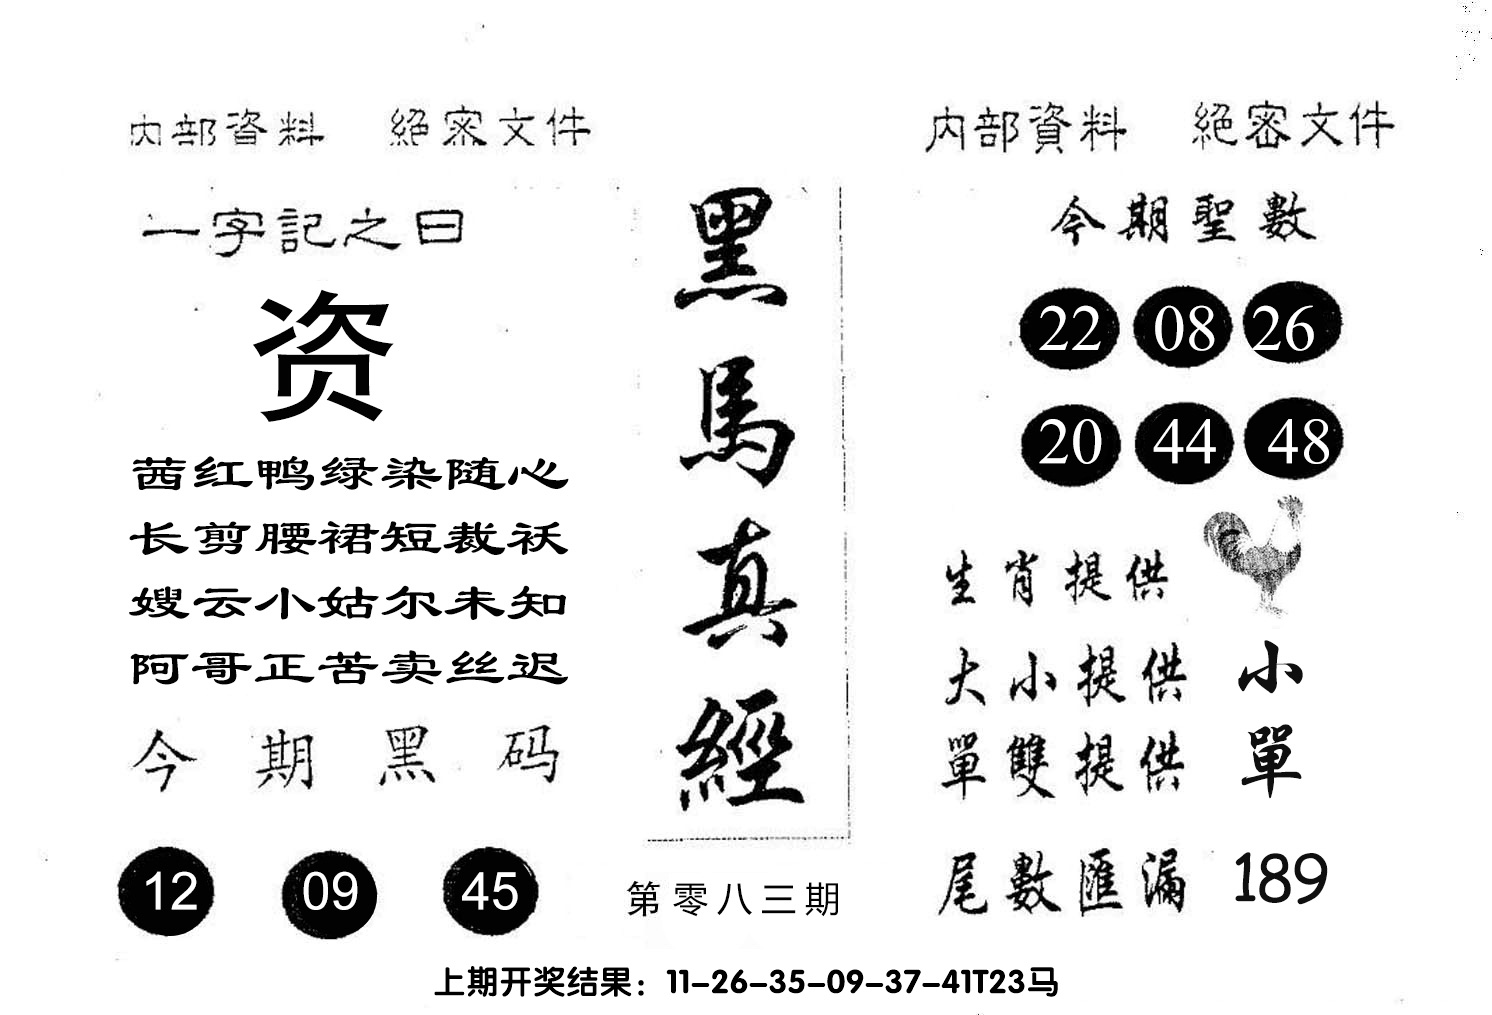 内部資料 絕密文件
一字記之曰
资
茜红鸭绿染随心
长剪腰裙短裁袄
嫂云小姑尔未知
阿哥正苦卖丝迟
今期黑码
12 09 45
黑馬真經
第零八三期
内部資料 絕密文件
今期聖數
22 08 26
20 44 48
生肖提供
大小提供 小
單雙提供 單
尾數匯漏 189
上期开奖结果：11-26-35-09-37-41T23马